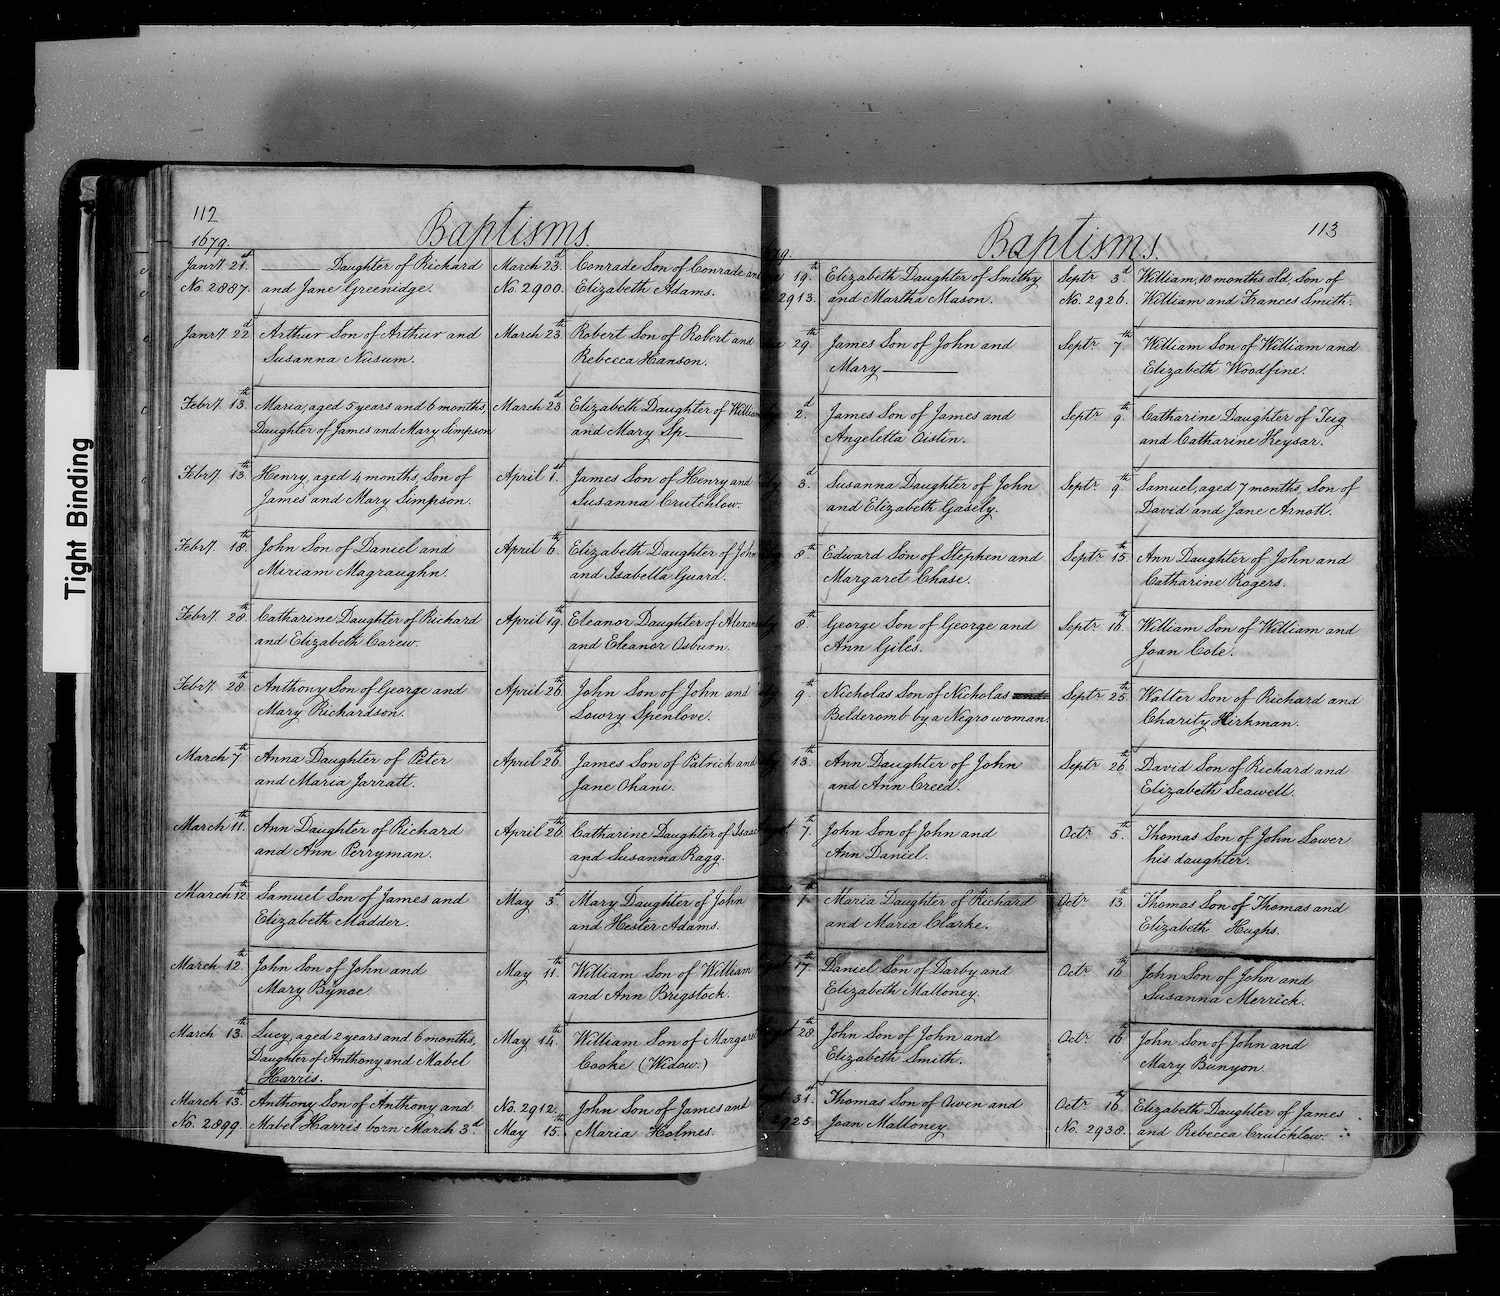 Tight Binding
112
Baptisms.
1679.
Janry. 21st
No. 2887.
Daughter of Richard
and Jane Greenidge.
Janry. 22d
Arthur Son of Arthur and
Susanna Nusum.
Febry. 13th
Maria, aged 5 years and 6 months,
Daughter of James and Mary Simpson
Febry. 13th
Henry, aged 4 months, Son of
James and Mary Simpson.
Febry. 18th
John Son of Daniel and
Miriam Magraughn.
Febry. 28th
Catharine Daughter of Richard
and Elizabeth Carew.
Febry. 28th
Anthony Son of George and
Mary Richardson.
March 7th
Anna Daughter of Peter
and Maria Jarratt.
March 11th
Ann Daughter of Richard
and Ann Perryman.
March 12th
Samuel Son of James and
Elizabeth Madder.
March 12th
John Son of John and
Mary Bynoe.
March 13th
Lucy, aged 2 years and 6 months,
Daughter of Anthony and Mabel
Harris.
March 13th
No. 2899
Anthony Son of Anthony and
Mabel Harris born March 3d.
March 23d
No. 2900.
Conrade Son of Conrade and
Elizabeth Adams.
March 23th
Robert Son of Robert and
Rebecca Hanson.
March 23d
Elizabeth Daughter of William
and Mary Sp
April 1st
James Son of Henry and
Susanna Crutchlow.
April 6th
Elizabeth Daughter of John
and Isabella Guard.
April 19th
Eleanor Daughter of
and Eleanor Osburn.
April 26th
John Son of John and
Lowry Spenlove.
April 26th
James Son of Patrick and
Jane Ohani.
April 26th
Catharine Daughter of Isaac
and Susanna Ragg.
May 3d
Mary Daughter of John
and Hester Adams.
May 11th
William Son of William
and Ann Brigstock.
May 14th
William Son of Margaret
Cooke (Widow.)
No. 2912.
May 15th
John Son of James and
Maria Holmes.
113
Baptisms.
19th
2913.
Elizabeth Daughter of Smithy
and Martha Mason.
29th
James Son of John and
Mary
2d
James Son of James and
Angeletta Oistin.
3d
Susanna Daughter of John
and Elizabeth Gasely.
8th
Edward Son of Stephen and
Margaret Chase.
8th
George Son of George and
Ann Giles.
9th
Nicholas Son of Nicholas and
Belderomb by a Negro woman.
13th
Ann Daughter of John
and Ann Creed.
7th
John Son of John and
Ann Daniel.
7th
Maria Daughter of Richard
and Maria Clarke.
17th
Daniel Son of Darby and
Elizabeth Malloney.
28th
John Son of John and
Elizabeth Smith.
31st
2925.
Thomas Son of Owen and
Joan Malloney
Septr. 3d
No. 2926.
William, 10 months old, Son of
William and Frances Smith.
Septr. 7th
William Son of William and
Elizabeth Woodfine.
Septr. 9th
Catharine Daughter of Teig
and Catharine Keysar.
Septr. 9th
Samuel, aged 7 months, Son of
David and Jane Arnott.
Septr. 15th
Ann Daughter of John and
Catharine Rogers.
Septr. 16th
William Son of William and
Joan Cole.
Septr. 25th
Walter Son of Richard and
Charity Kirkman.
Septr. 26th
David Son of Richard and
Elizabeth Seawell.
Octr. 5th
Thomas Son of John Lower
his daughter.
Octr. 13th
Thomas Son of Thomas and
Elizabeth Hughs.
Octr. 16th
John Son of John and
Susanna Merrick.
Octr. 16th
John Son of John and
Mary Bunyon.
Octr. 16th
No. 2938.
Elizabeth Daughter of James
and Rebecca Crutchlow.